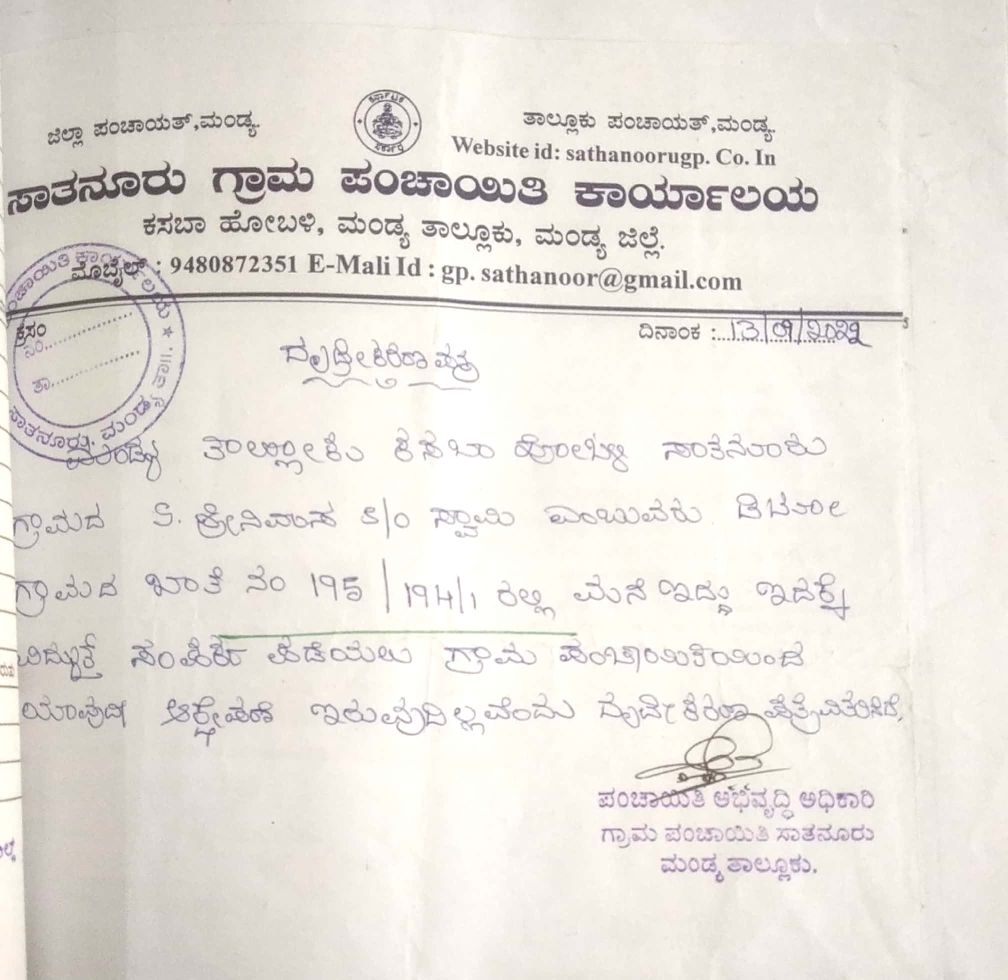 ಜಿಲ್ಲಾ ಪಂಚಾಯತ್,ಮಂಡ್ಯ.
ತಾಲ್ಲೂಕು ಪಂಚಾಯತ್,ಮಂಡ್ಯ.
Website id: sathanoorugp. Co. In
ಸಾತನೂರು ಗ್ರಾಮ ಪಂಚಾಯಿತಿ ಕಾರ್ಯಾಲಯ
ಕಸಬಾ ಹೋಬಳಿ, ಮಂಡ್ಯ ತಾಲ್ಲೂಕು, ಮಂಡ್ಯ ಜಿಲ್ಲೆ.
ಮೊಬೈಲ್ : 9480872351 E-Mali Id : gp. sathanoor@gmail.com
ಕ್ರಸಂ
ನಂ
ತಾ
ದಿನಾಂಕ :
ದೃಢೀಕರಣ ಪತ್ರ
ಮಂಡ್ಯ ತಾಲ್ಲೂಕು ಕಸಬಾ ಹೋಬಳಿ ಸಾತನೂರು
ಗ್ರಾಮದ S. ಶ್ರೀನಿವಾಸ S/O ಸ್ವಾಮಿ ಎಂಬುವರು
ಗ್ರಾಮದ ಖಾತೆ ನಂ 195/194/1 ರಲ್ಲಿ ಮನೆ ಇದ್ದು ಇದಕ್ಕೆ
ವಿದ್ಯುತ್ ಸಂಪರ್ಕ ಪಡೆಯಲು ಗ್ರಾಮ ಪಂಚಾಯಿತಿಯಿಂದ
ಯಾವುದೇ ಆಕ್ಷೇಪಣೆ ಇರುವುದಿಲ್ಲವೆಂದು ದೃಢೀಕರಣ
ಪಂಚಾಯಿತಿ ಅಭಿವೃದ್ಧಿ ಅಧಿಕಾರಿ
ಗ್ರಾಮ ಪಂಚಾಯಿತಿ ಸಾತನೂರು
ಮಂಡ್ಯ ತಾಲ್ಲೂಕು.